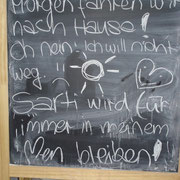 Morgen fahren wir
nach Hause!
Oh nein! Ich will nicht
weg.
Sarti wird für
immer in meinem
bleiben!